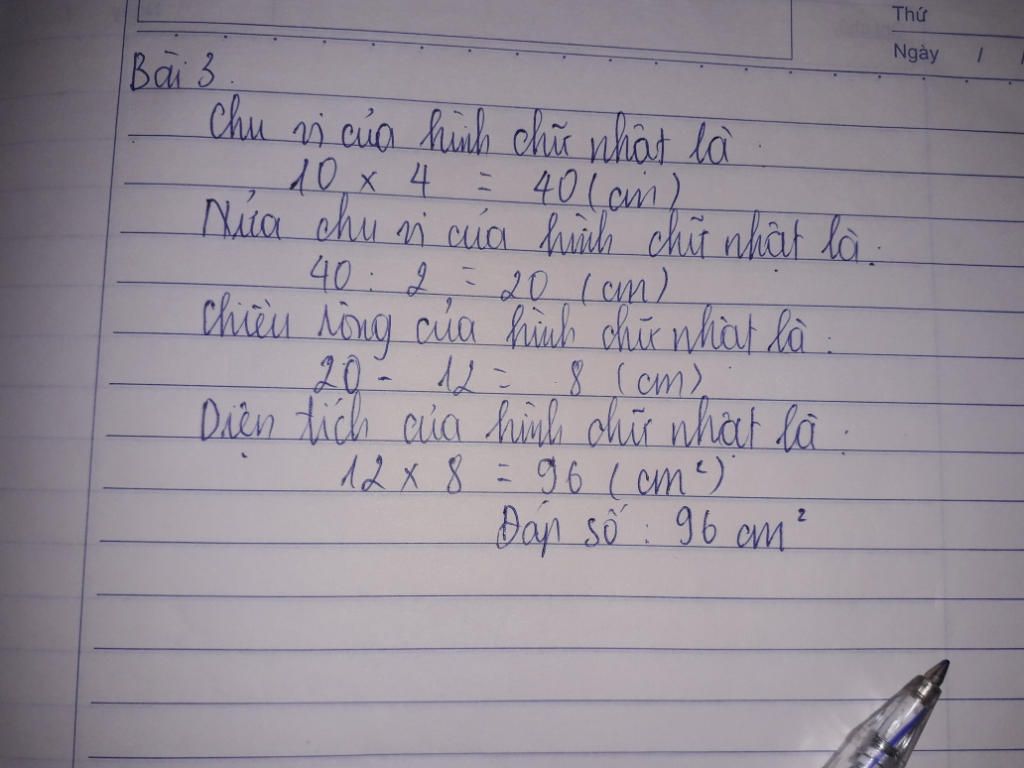 Thứ
Ngày / /
Bài 3.
Chu vi của hình chữ nhật là :
10 x 4 = 40 (cm)
Nửa chu vi của hình chữ nhật là :
40 : 2 = 20 (cm)
Chiều rộng của hình chữ nhật là :
20 - 12 = 8 (cm)
Diện tích của hình chữ nhật là :
12 x 8 = 96 (cm²)
Đáp số : 96 cm²